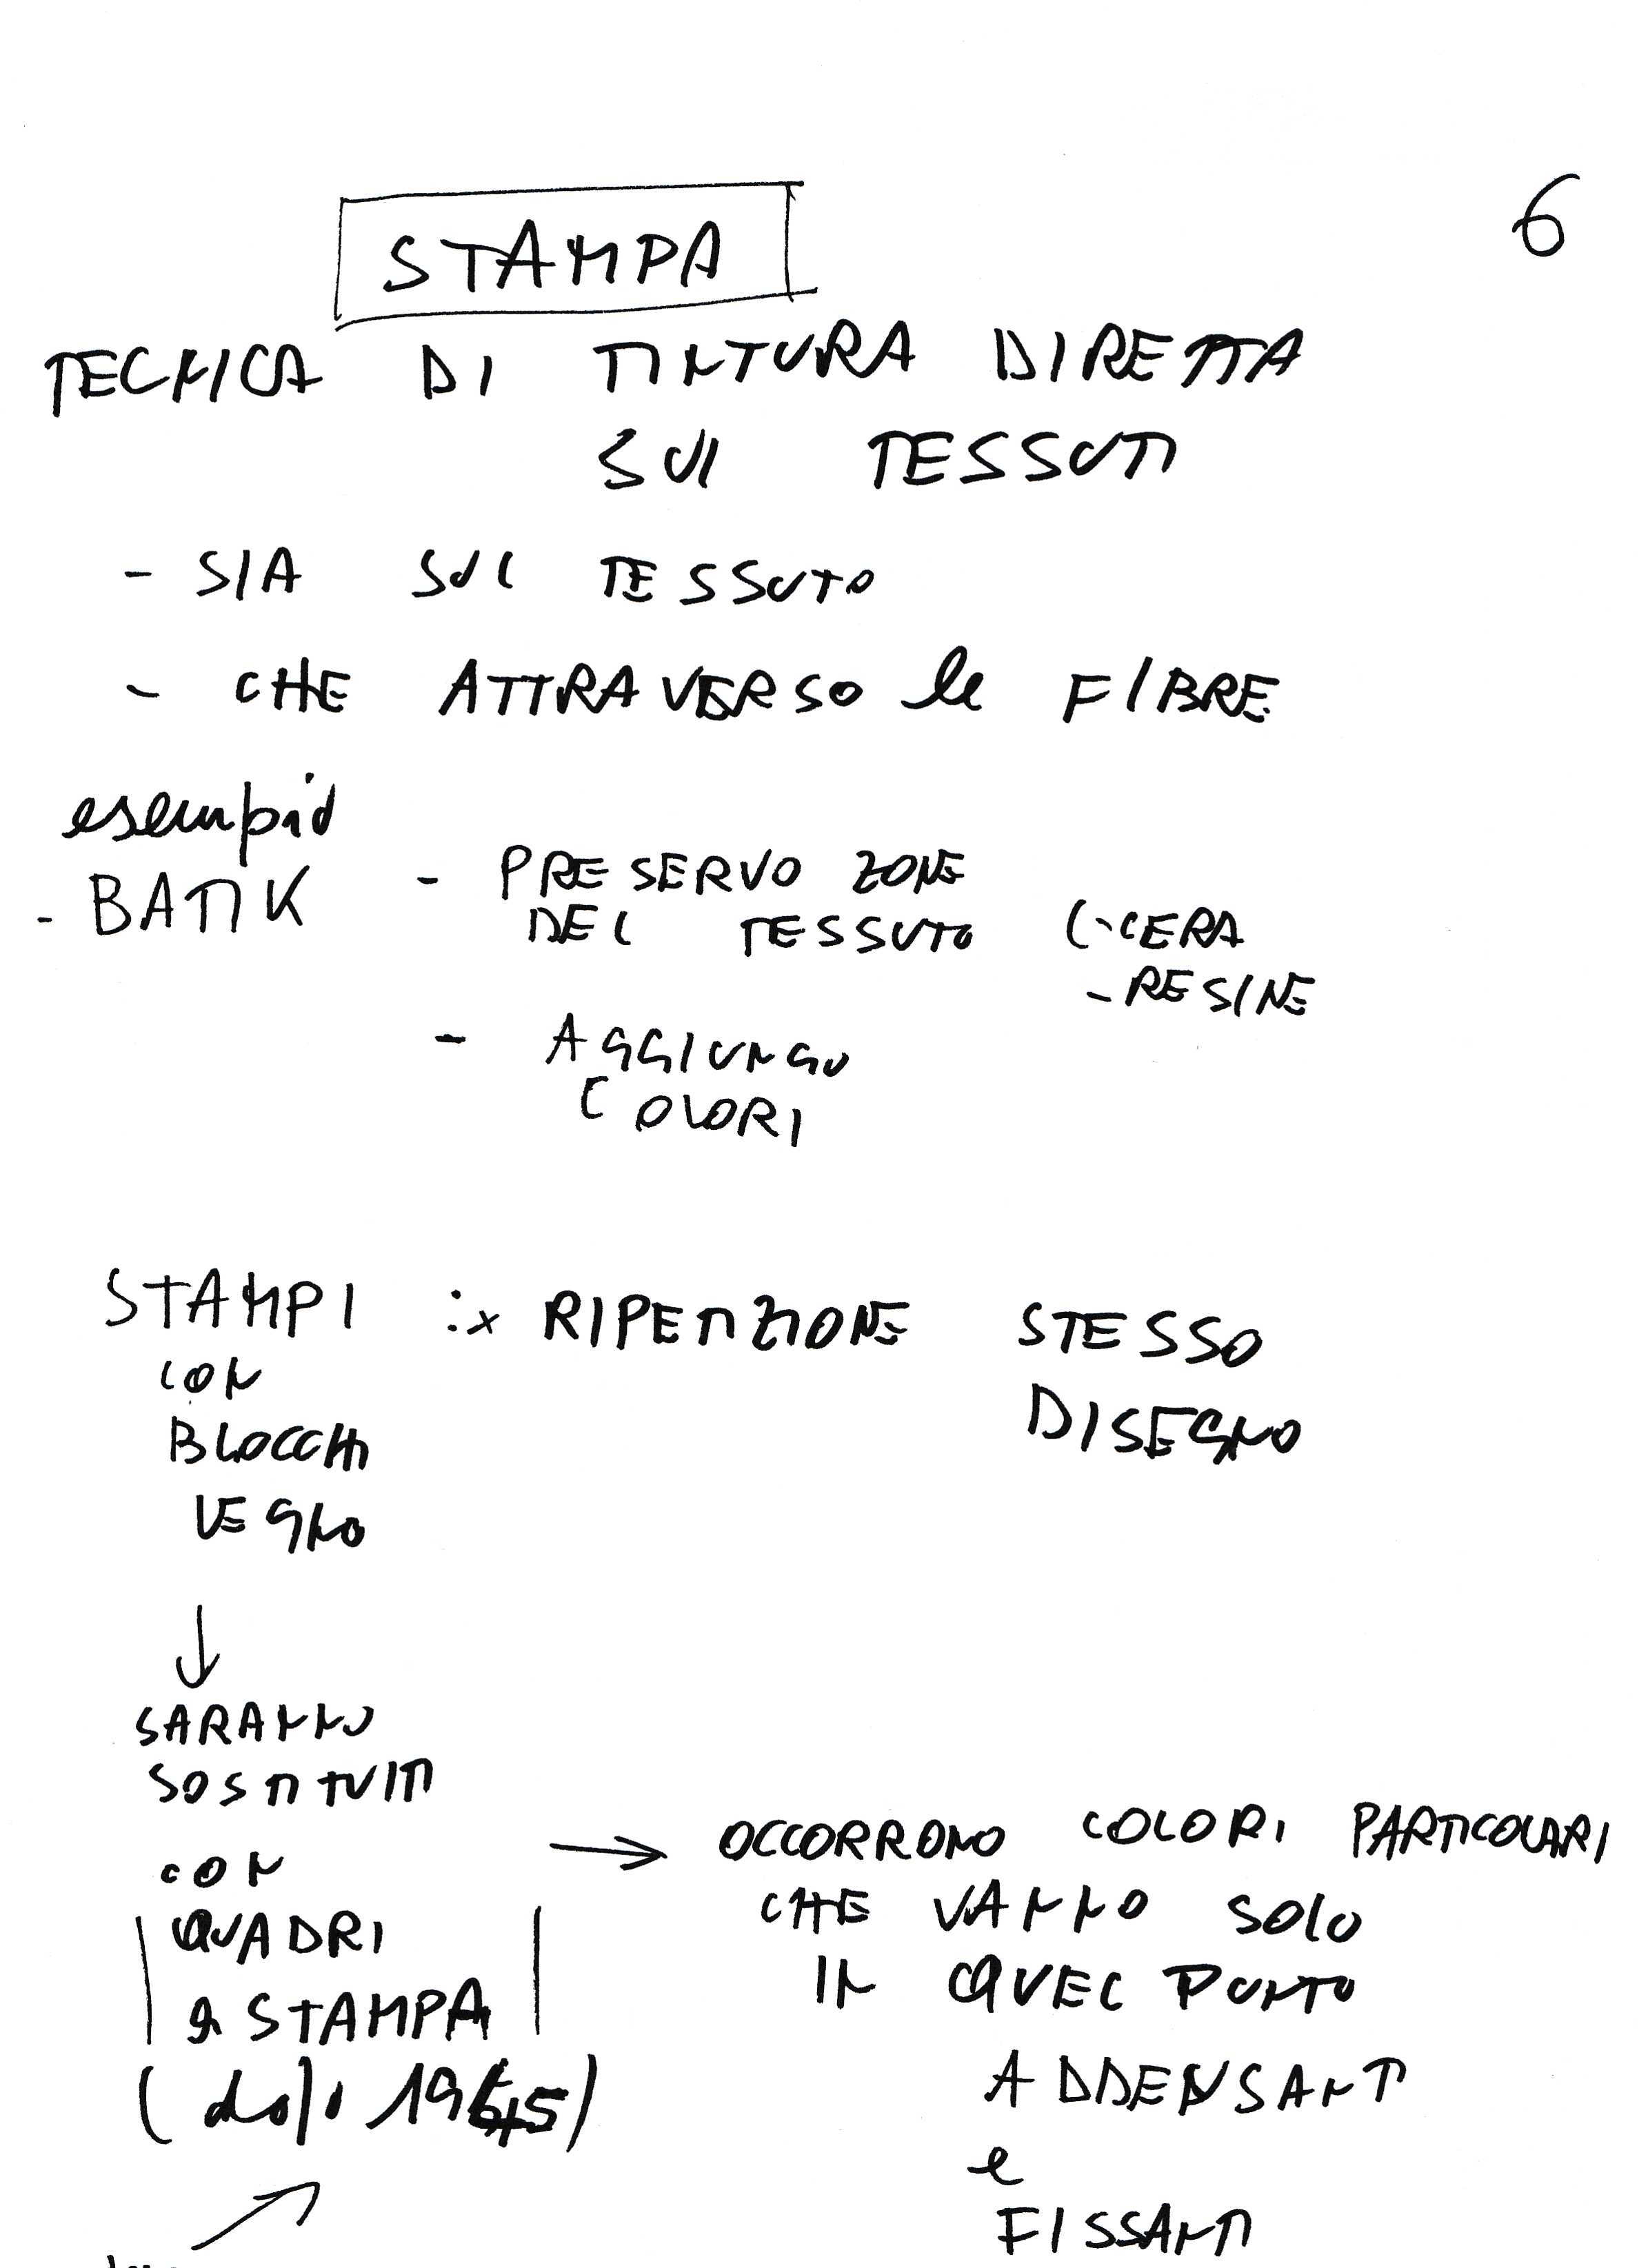 6
STAMPA
TECNICA DI TINTURA DIRETTA
SUI TESSUTI
- SIA SUL TESSUTO
- CHE ATTRAVERSO le FIBRE
esempio
- BATIK
- PRESERVO ZONE
DEL TESSUTO (- CERA
- RESINE
- AGGIUNGO
COLORI
STAMPI : x RIPETIZIONE STESSO
DISEGNO
CON
BLOCCHI
LEGNO
↓
SARANNO
SOSTITUITI
CON
QUADRI
di STAMPA
(dopo 1945)
→ OCCORRONO COLORI PARTICOLARI
CHE VANNO SOLO
IN QUEL PUNTO
ADDENSANTI
e
FISSANTI